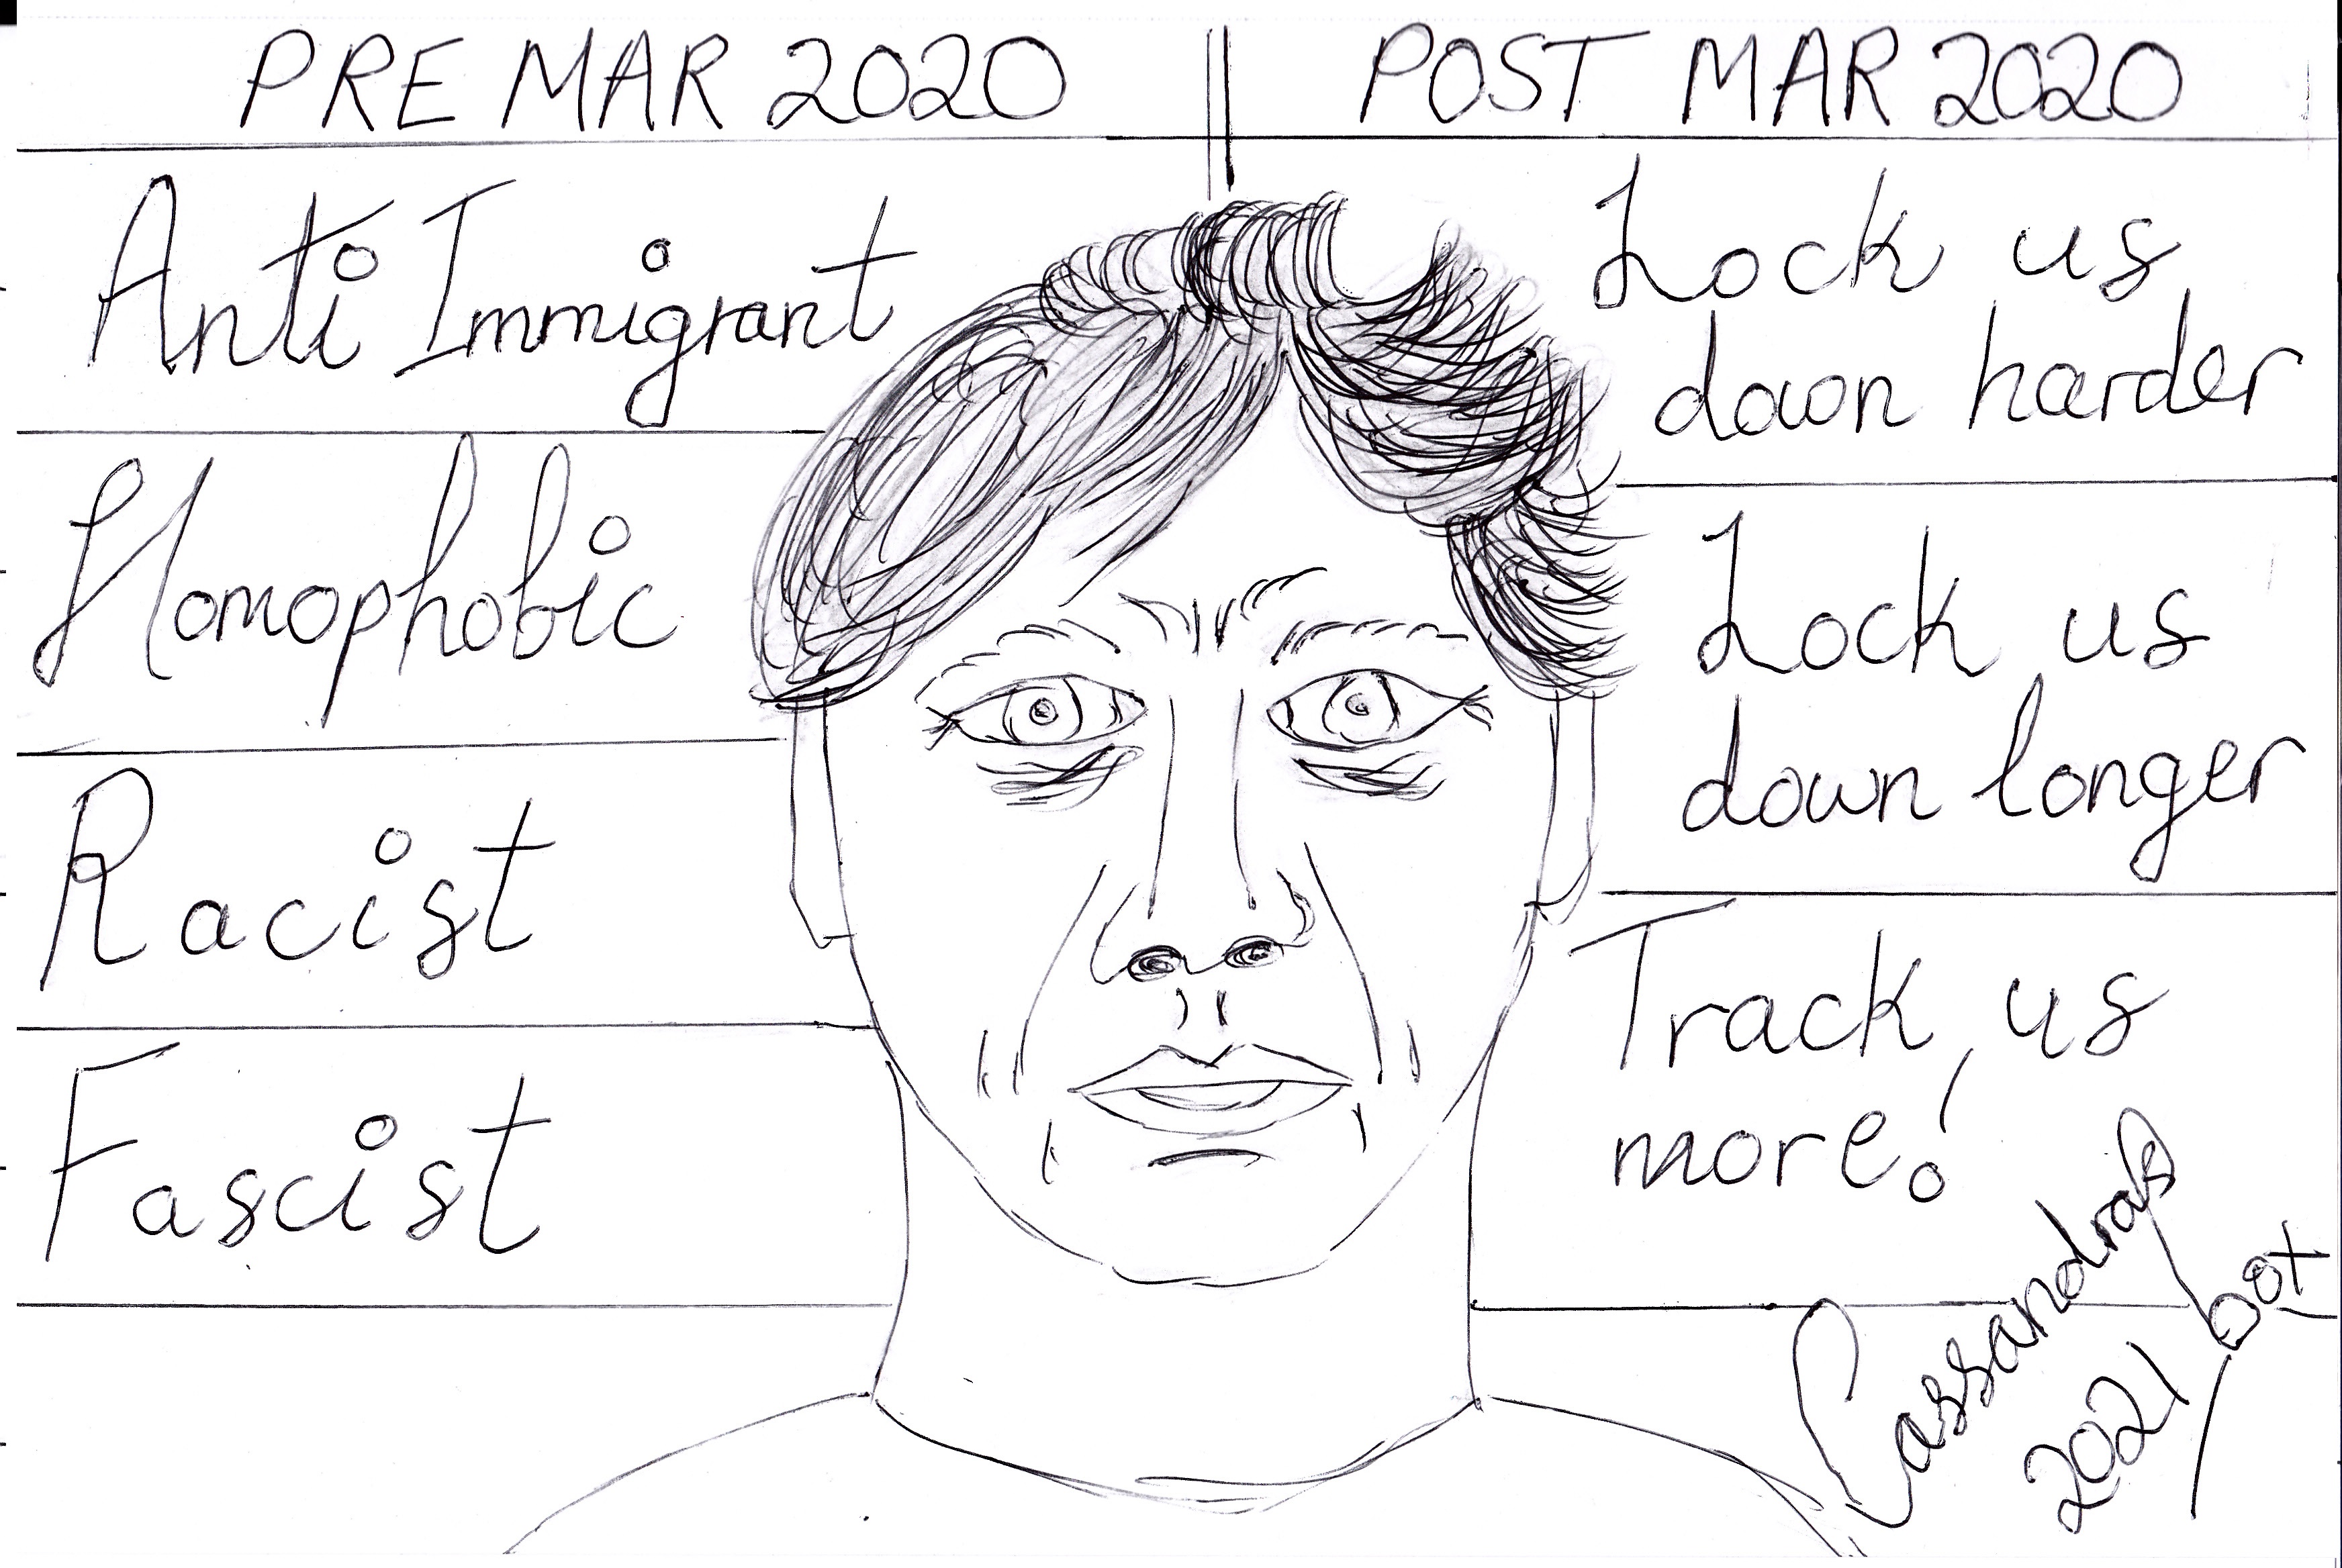 PRE MAR 2020
POST MAR 2020
Anti Immigrant
Homophobic
Racist
Fascist
Lock us
down harder
Lock us
down longer
Track us
more!
2021